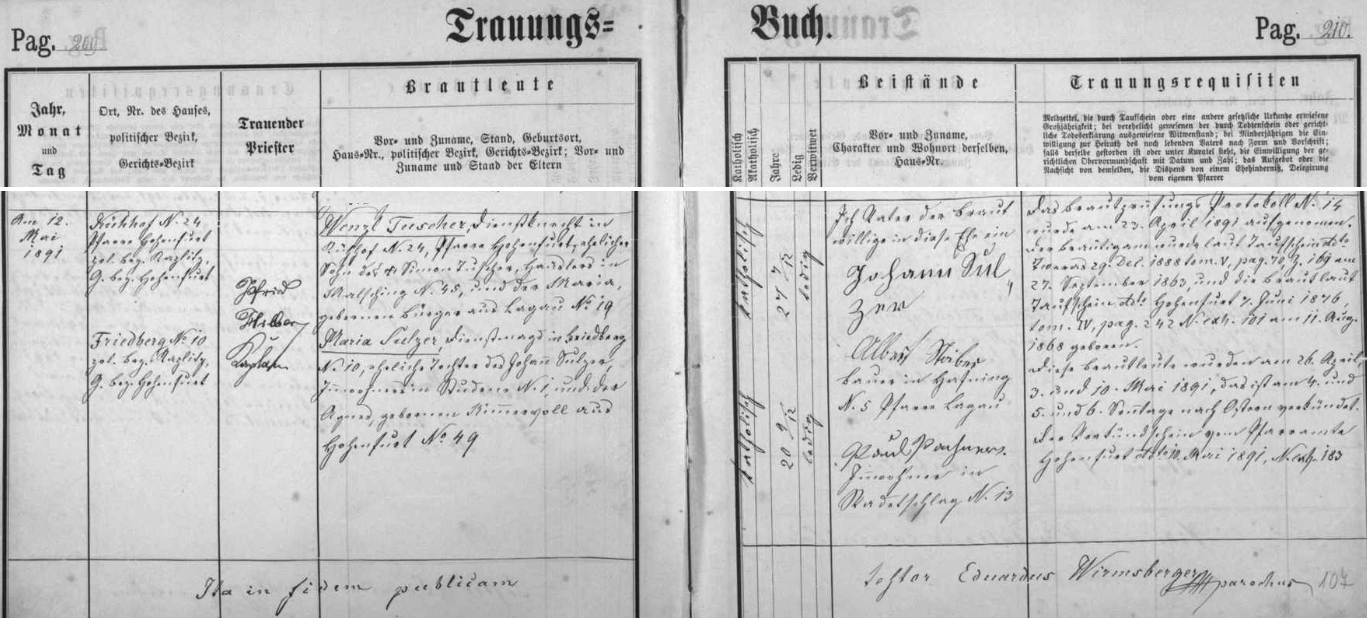 Trauungs=
Buch.
Pag. 209
Pag. 210.
Jahr,
Monat
und
Tag
Ort, Nr. des Hauses,
politischer Bezirk,
Gerichts-Bezirk
Trauender
Priester
Brautleute
Vor- und Zuname, Stand, Geburtsort,
Haus-Nr., politischer Bezirk, Gerichts-Bezirk; Vor- und
Zuname und Stand der Eltern
Katholisch
Akatholisch
Jahre
Ledig
Verwitwet
Beistände
Vor- und Zuname,
Charakter und Wohnort derselben,
Haus-Nr.
Trauungsrequisiten
Meldzettel, die durch Taufschein oder eine andere gesetzliche Urkunde erwiesene
Großjährigkeit; bei verehelicht gewesenen der durch Todtenschein oder gericht-
liche Todeserklärung ausgewiesene Witwenstand; bei Minderjährigen die Ein-
willigung zur Heirath des noch lebenden Vaters nach Form und Vorschrift;
falls derselbe gestorben ist oder unter Kuratel steht, die Einwilligung der ge-
richtlichen Obervormundschaft mit Datum und Zahl; das Aufgebot oder die
Nachsicht von demselben, die Dispens von einem Ehehindernis, Delegirung
vom eigenen Pfarrer
Am 12.
Mai
1891
N. 24,
Pfarre Hohenfurt
pol. bez. Kaplitz,
G. bez. Hohenfurt
Friedberg No 10
pol. bez. Kaplitz,
G. bez. Hohenfurt
Kaplan
Wenzl Tuscher, Dienstknecht in
N. 24, Pfarre Hohenfurt, ehelicher
Sohn des † Simon Tuscher, Häuslers in
Malsching N. 45, und der Maria,
gebornen Bürger aus Lagau No 19
Maria Sulzer, Dienstmagd in Friedberg
No 10, eheliche Tochter des Johann Sulzer,
Inwohners in Studene N. 1, und der
Agnes, gebornen Kimmervoll aus
Hohenfurt No 49
katholisch
27 7/12
ledig
katholisch
20 9/12
ledig
Ich Vater der Braut
willige in diese Ehe ein
Johann Sul
zer
Albert
Bauer in
N. 5 Pfarre Lagau
Paul Pachner
Inwohner in
Radetschlag N. 13
Das Brautprüfungs Protokoll N. 14
wurde am 23. April 1891 aufgenommen.
Der Bräutigam wurde laut Taufschein dto
29. Dez. 1888 tom. V, pag. 70, Z. 169 am
27. September 1863, und die Braut laut
Taufschein dto Hohenfurt 7. Juni 1876,
tom. IV, pag. 242 N. exh. 101 am 11. Aug.
1868 geboren.
Diese Brautleute wurden am 26. April,
3. und 10. Mai 1891, das ist am 4. und
5. und 6. Sonntage nach Ostern verkündet.
Der Verkündschein vom Pfarramte
Hohenfurt dto 10. Mai 1891, N. exh. 183
Ita in fidem publicam
Eduardus Wirmsberger parochus
107